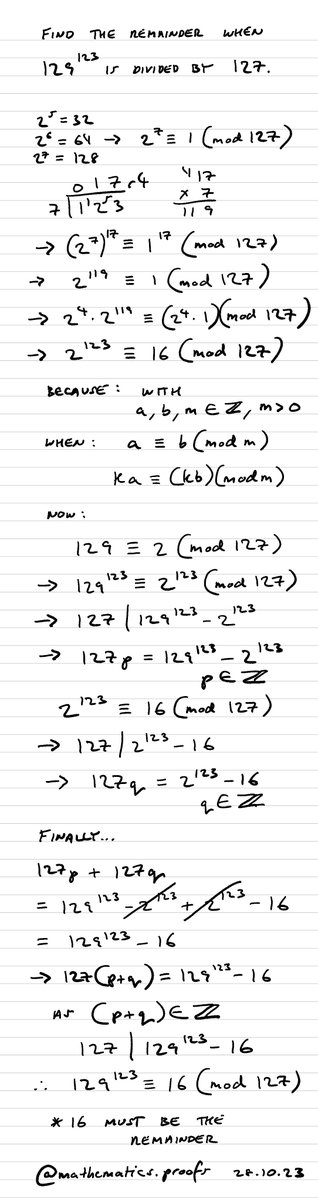 FIND THE REMAINDER WHEN
129^123 IS DIVIDED BY 127.
2^5 = 32
2^6 = 64 → 2^7 ≡ 1 (mod 127)
2^7 = 128
0 1 7 r4
7 | 1 ¹2 ⁵3
⁴17
× 7
119
→ (2^7)^17 ≡ 1^17 (mod 127)
→ 2^119 ≡ 1 (mod 127)
→ 2^4 · 2^119 ≡ (2^4 · 1)(mod 127)
→ 2^123 ≡ 16 (mod 127)
BECAUSE: WITH
a, b, m ∈ ℤ, m > 0
WHEN: a ≡ b (mod m)
ka ≡ (kb)(mod m)
NOW:
129 ≡ 2 (mod 127)
→ 129^123 ≡ 2^123 (mod 127)
→ 127 | 129^123 - 2^123
→ 127p = 129^123 - 2^123
p ∈ ℤ
2^123 ≡ 16 (mod 127)
→ 127 | 2^123 - 16
→ 127q = 2^123 - 16
q ∈ ℤ
FINALLY...
127p + 127q
= 129^123 - 2^123 + 2^123 - 16
= 129^123 - 16
→ 127(p+q) = 129^123 - 16
AS (p+q) ∈ ℤ
127 | 129^123 - 16
∴ 129^123 ≡ 16 (mod 127)
* 16 MUST BE THE
REMAINDER
@mathematics.proofs 28.10.23